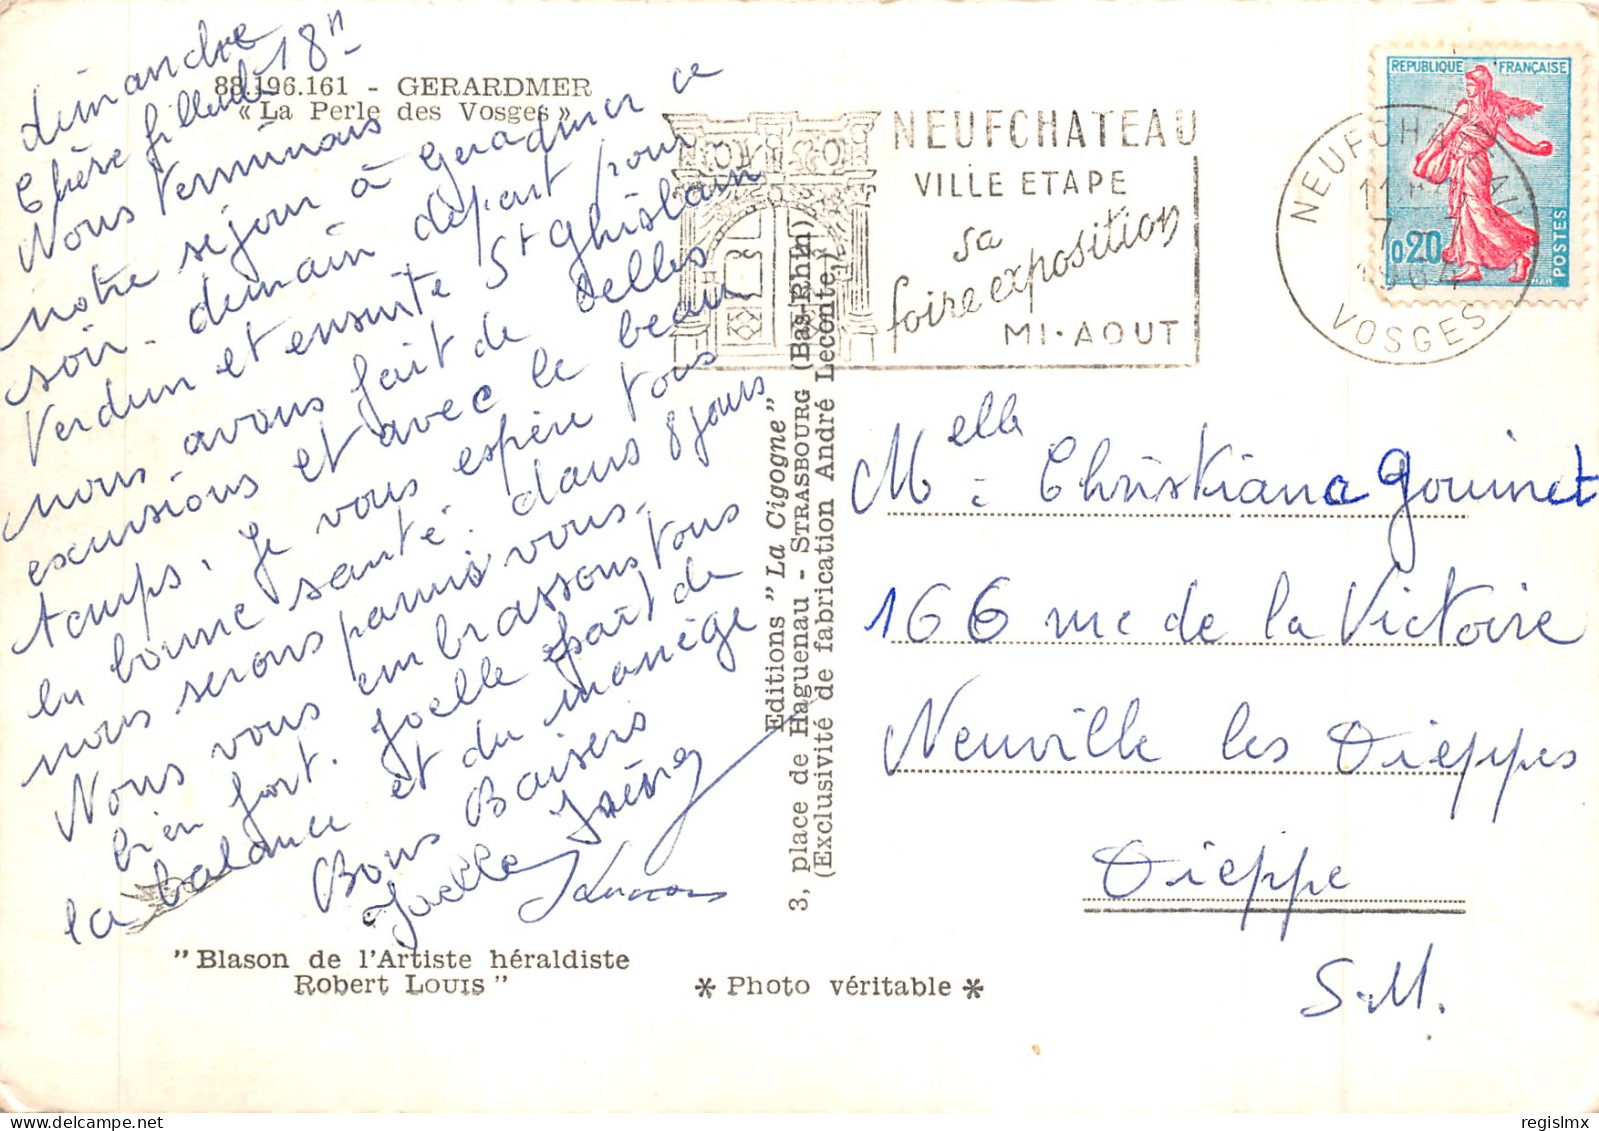 dimandre 18h
Chère filleule
Nous terminons
notre séjour à Geradmer ce
soir. demain départ pour
Verdun et ensuite St Ghislain
nous avons fait de belles
excursions et avec le beau
temps. Je vous espère tous
en bonne santé. dans 8 jours
nous serons parmis vous.
Nous vous embrassons tous
bien fort. Joelle fait de
la balance et du manège
Bons Baisers
Joelle Irène
88.196.161 - GERARDMER
« La Perle des Vosges »
NEUFCHATEAU
VILLE ETAPE
sa
foire exposition
MI-AOUT
NEUFCHATEAU
VOSGES
REPUBLIQUE FRANÇAISE
0,20
POSTES
Melle Christiane Gouinet
166 rue de la Victoire
Neuville les Dieppes
Dieppe
S.M.
Editions "La Cigogne"
3, place de Haguenau - STRASBOURG (Bas-Rhin)
(Exclusivité de fabrication André Leconte)
"Blason de l'Artiste héraldiste
Robert LOUIS"
* Photo véritable *
regislmx